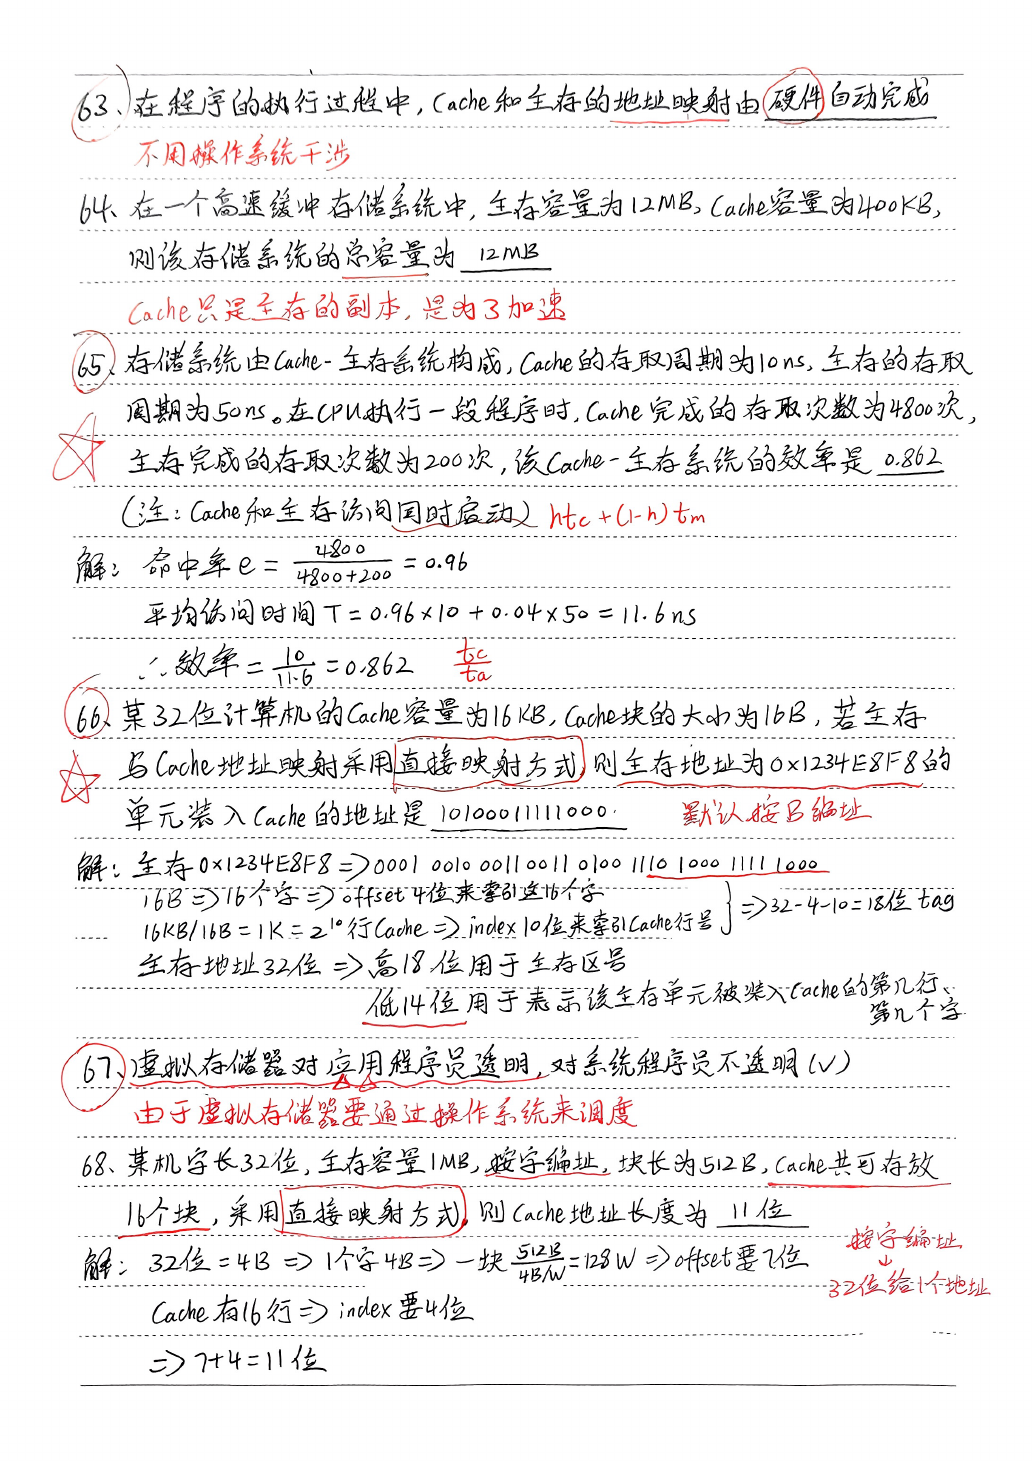 63、在程序的执行过程中，Cache和主存的地址映射由 硬件 自动完成
不用操作系统干涉
64、在一个高速缓冲存储系统中，主存容量为12MB，Cache容量为400KB，
则该存储系统的总容量为 12MB
Cache只是主存的副本，是为了加速
65、存储系统由Cache-主存系统构成，Cache的存取周期为10ns，主存的存取
周期为50ns。在CPU执行一段程序时，Cache完成的存取次数为4800次，
主存完成的存取次数为200次，该Cache-主存系统的效率是 0.862
（注：Cache和主存访问同时启动） htc+(1-h)tm
解：命中率e = 4800/(4800+200) = 0.96
平均访问时间T=0.96×10+0.04×50=11.6ns
∴效率=10/11.6=0.862 tc/ta
66、某32位计算机的Cache容量为16KB，Cache块的大小为16B，若主存
与Cache地址映射采用直接映射方式，则主存地址为0x1234E8F8的
单元装入Cache的地址是 10100011111000. 默认按B编址
解：主存0x1234E8F8⇒0001 0010 0011 0011 0100 1110 1000 1111 1000
16B⇒16个字⇒offset 4位来索引这16个字
16KB/16B=1K=2^10行Cache⇒index 10位来索引Cache行号 } ⇒32-4-10=18位tag
主存地址32位⇒高18位用于主存区号
低14位用于表示该主存单元被装入Cache的第几行、
第几个字
67、虚拟存储器对应用程序员透明，对系统程序员不透明（√）
由于虚拟存储器要通过操作系统来调度
68、某机字长32位，主存容量1MB，按字编址，块长为512B，Cache共可存放
16个块，采用直接映射方式，则Cache地址长度为 11位
按字编址
↓
32位给1个地址
解：32位=4B⇒1个字4B⇒一块512B/4B/W=128W⇒offset要7位
Cache有16行⇒index要4位
⇒7+4=11位